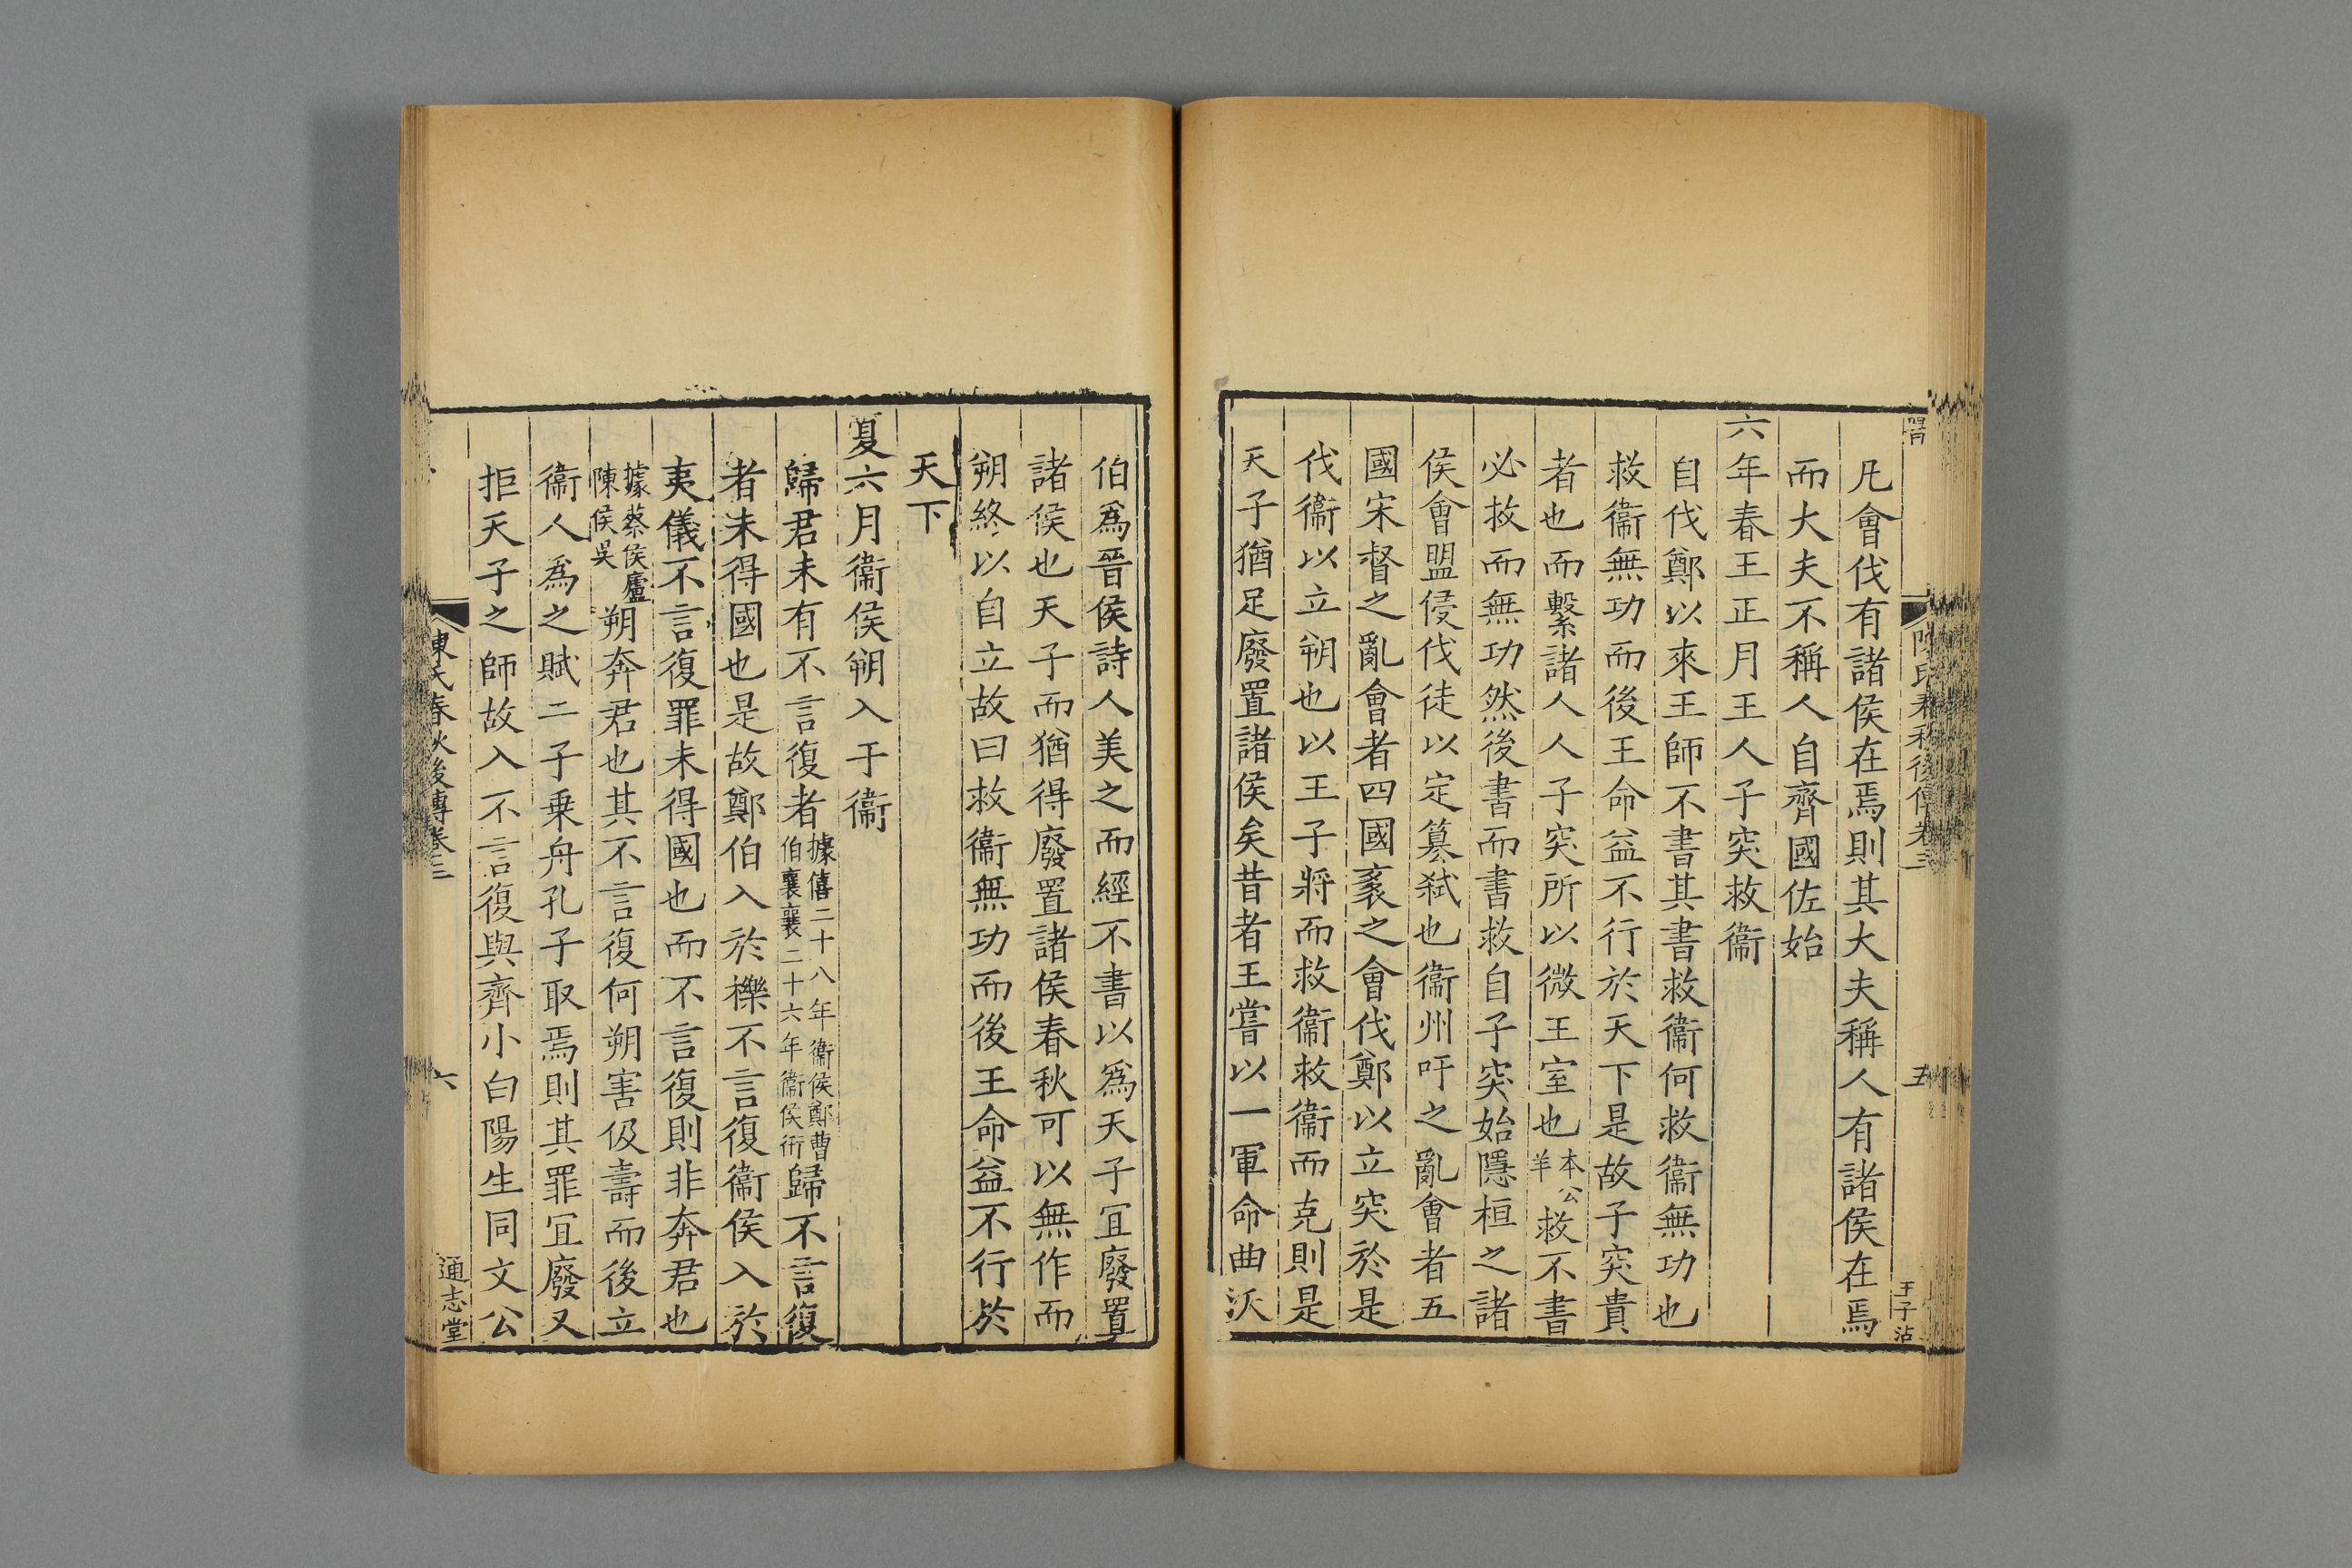 凡會伐有諸侯在焉則其大夫稱人有諸侯在焉
而大夫不稱人自齊國佐始
六年春王正月王人子突救衞
自伐鄭以來王師不書其書救衞何救衞無功也
救衞無功而後王命益不行於天下是故子突貴
者也而繫諸人人子突所以微王室也本公羊救不書
必救而無功然後書而書救自子突始隱桓之諸
侯會盟侵伐徒以定篡弑也衞州吁之亂會者五
國宋督之亂會者四國袲之會伐鄭以立突於是
伐衞以立朔也以王子將而救衞救衞而克則是
天子猶足廢置諸侯矣昔者王嘗以一軍命曲沃
伯爲晉侯詩人美之而經不書以爲天子冝廢置
諸侯也天子而猶得廢置諸侯春秋可以無作而
朔終以自立故曰救衞無功而後王命益不行於
天下
夏六月衞侯朔入于衞
歸君未有不言復者據僖二十八年衞侯鄭曹伯襄襄二十六年衞侯衎歸不言復
者未得國也是故鄭伯入於櫟不言復衞侯入於
夷儀不言復罪未得國也而不言復則非奔君也
據蔡侯廬陳侯吳朔奔君也其不言復何朔害伋壽而後立
衞人爲之賦二子乗舟孔子取焉則其罪冝廢又
拒天子之師故入不言復與齊小白陽生同文公
陳氏春秋後傳卷三
六
通志堂
陳氏春秋後傳卷三
五
王子沾